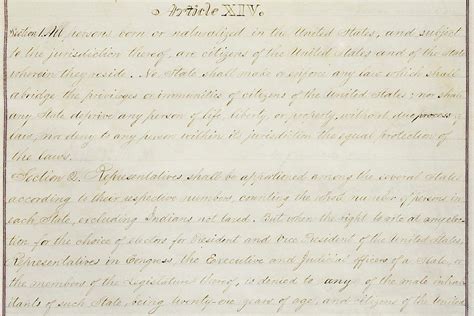 Article XIV.
Section 1. All persons born or naturalized in the United States, and subject
to the jurisdiction thereof, are citizens of the United States and of the State
wherein they reside. No State shall make or enforce any law which shall
abridge the privileges or immunities of citizens of the United States; nor shall
any State deprive any person of life, liberty, or property, without due process of
law; nor deny to any person within its jurisdiction the equal protection of
the laws.
Section 2. Representatives shall be apportioned among the several States
according to their respective numbers, counting the whole number of persons in
each State, excluding Indians not taxed. But when the right to vote at any elec-
tion for the choice of electors for President and Vice President of the United States,
Representatives in Congress, the Executive and Judicial officers of a State, or
the members of the Legislature thereof, is denied to any of the male inhabi-
tants of such State, being twenty-one years of age, and citizens of the United